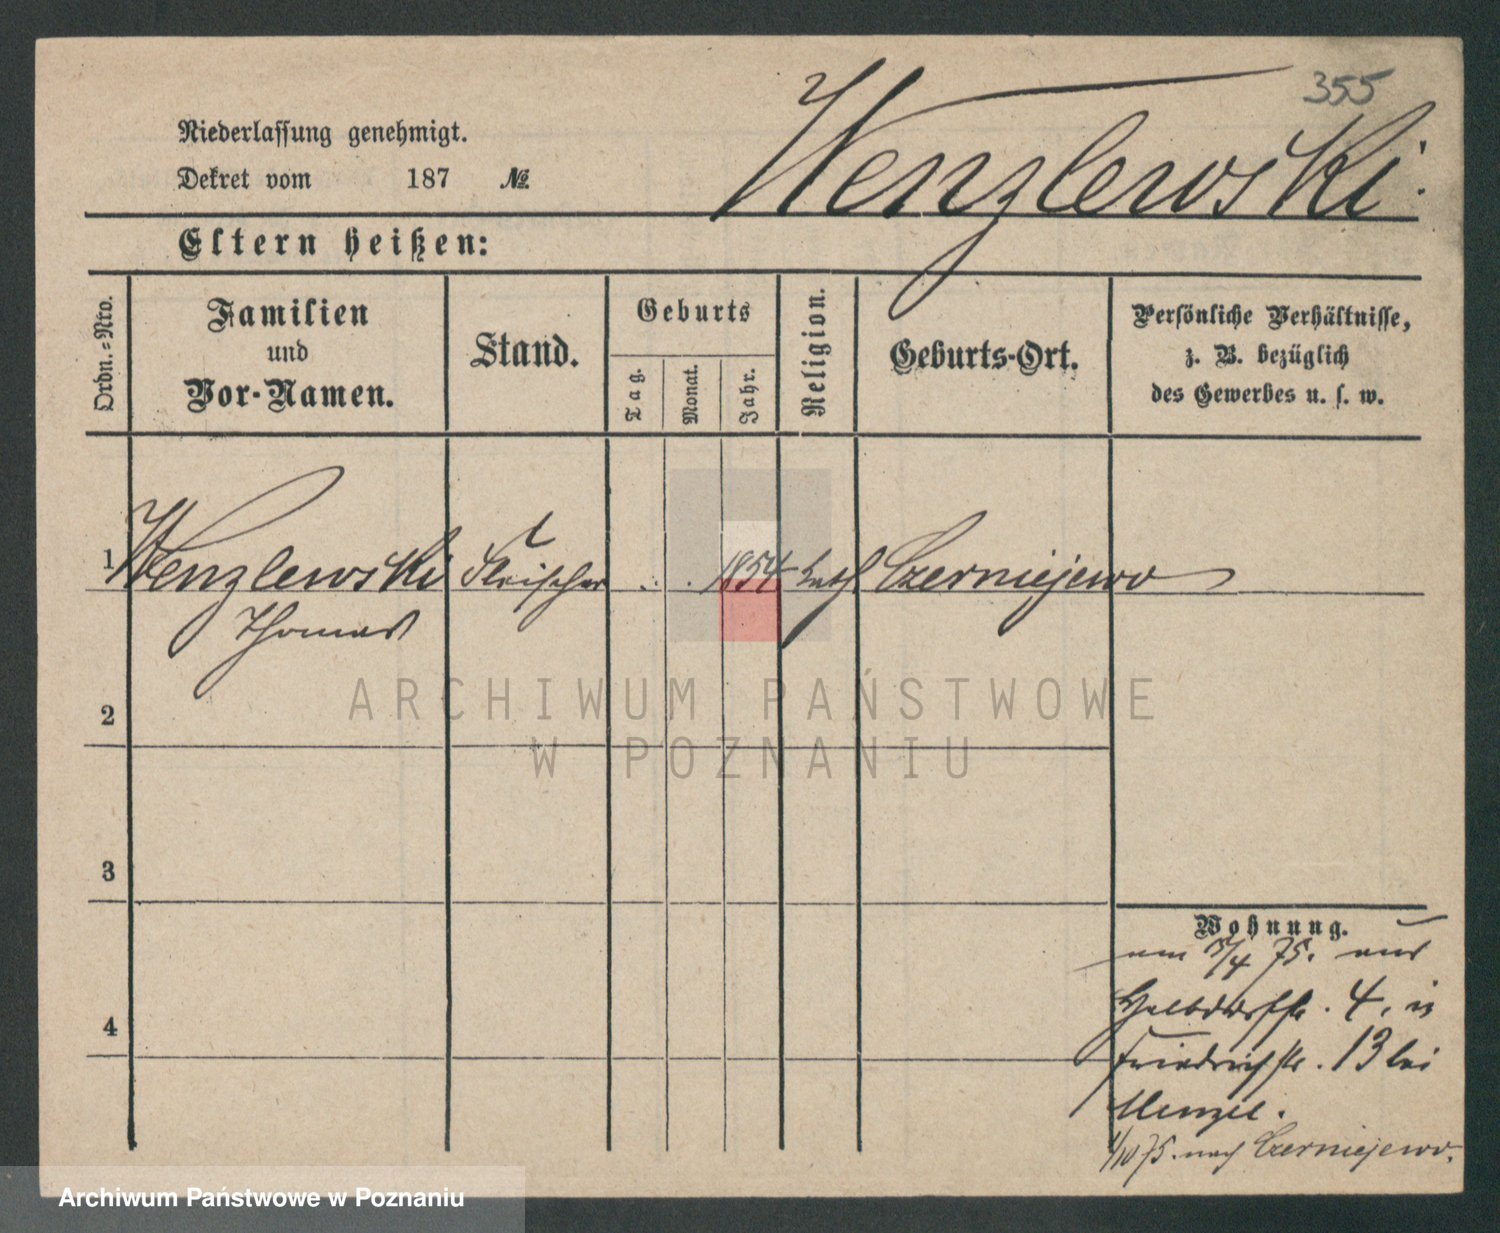 355
Wenzlewski.
Niederlassung genehmigt.
Dekret vom 187 №
Eltern heißen:
Ordn.-Nro.
Familien
und
Vor-Namen.
Stand.
Geburts
Tag.
Monat.
Jahr.
Religion.
Geburts-Ort.
Persönliche Verhältnisse,
z. B. bezüglich
des Gewerbes u. s. w.
1 Wenzlewski Fleischer . . 1854 kath Czerniejewo
Thomas
ARCHIWUM PAŃSTWOWE
W POZNANIU
2
3
4
Wohnung.
am /4 75. aus
Halbdorfstr. 4, in
Friedrichstr. 13 bei
Menzel.
1/10 75. nach Czerniejewo.
Archiwum Państwowe w Poznaniu